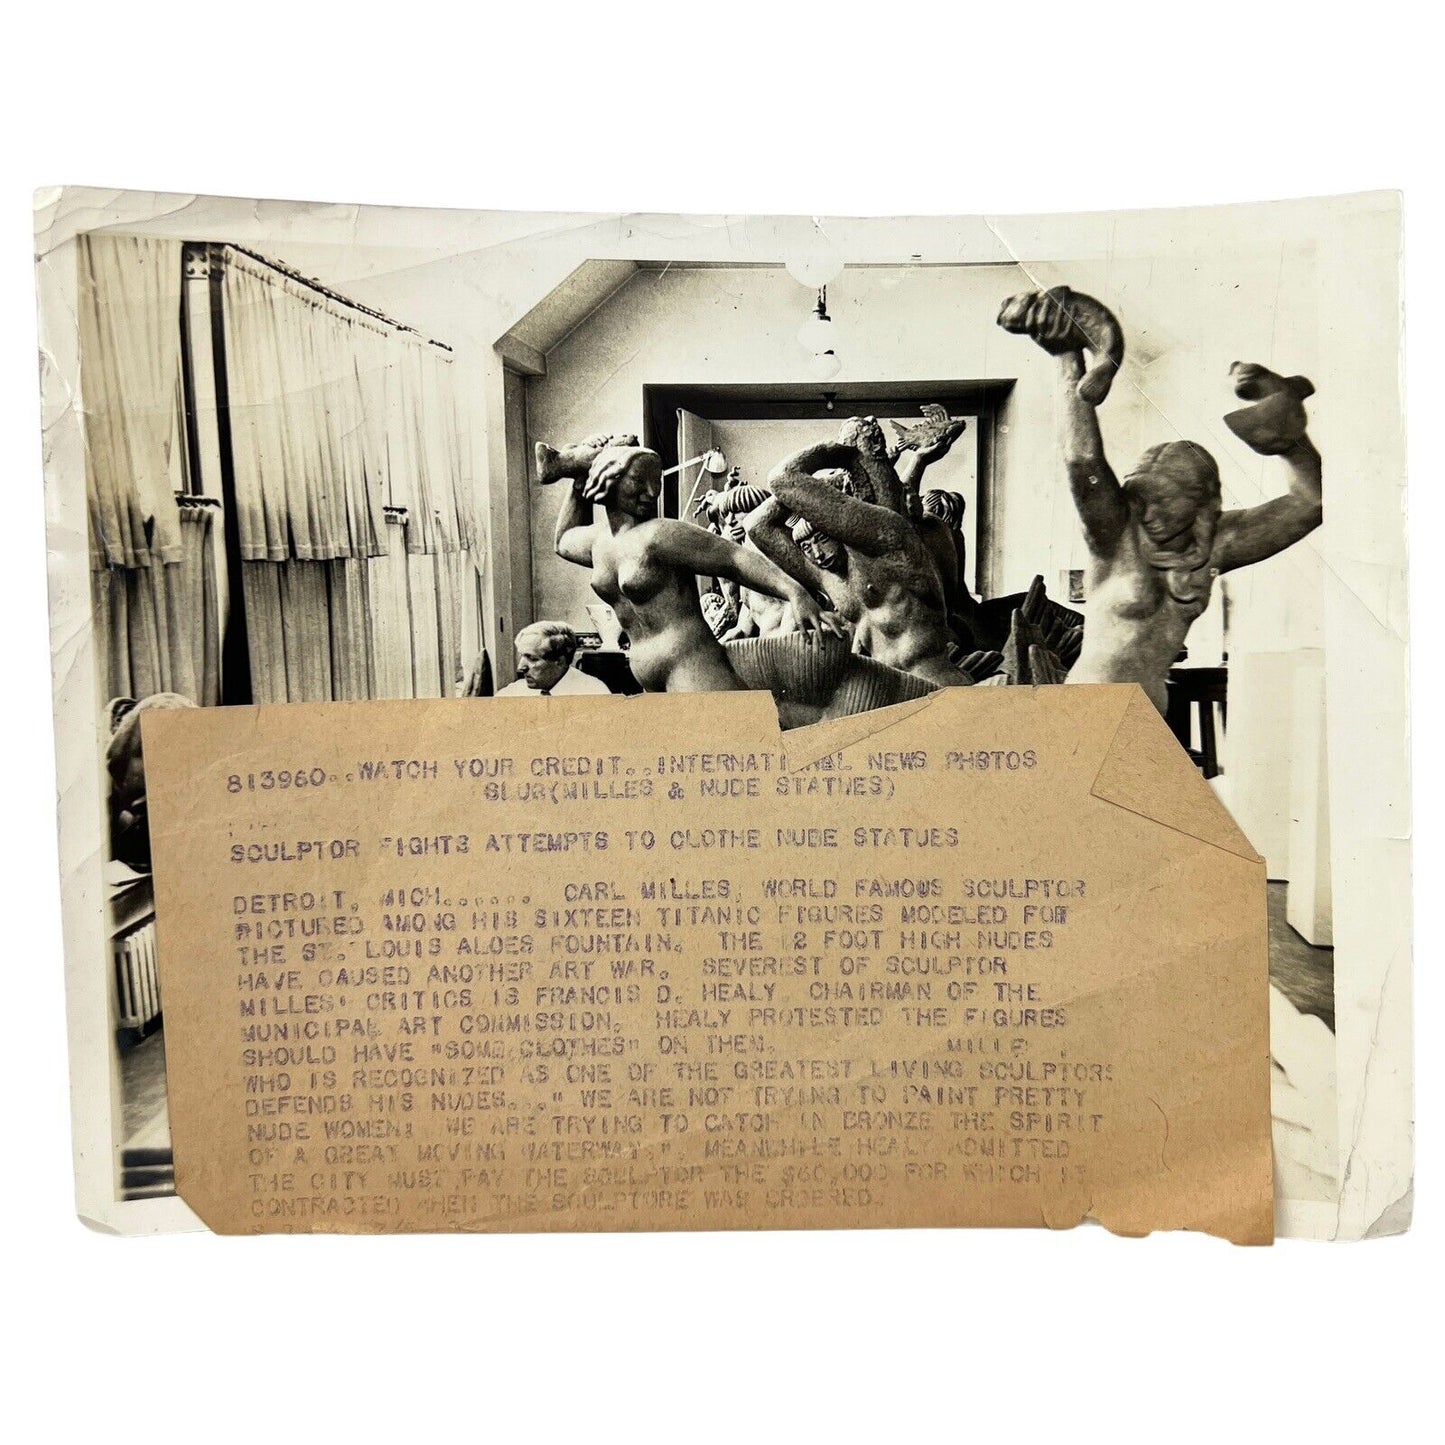 813960..WATCH YOUR CREDIT..INTERNATIONAL NEWS PHOTOS
SLUG(MILLES & NUDE STATUES)
SCULPTOR FIGHTS ATTEMPTS TO CLOTHE NUDE STATUES
DETROIT, MICH....... CARL MILLES, WORLD FAMOUS SCULPTOR
PICTURED AMONG HIS SIXTEEN TITANIC FIGURES MODELED FOR
THE ST. LOUIS ALOES FOUNTAIN. THE 12 FOOT HIGH NUDES
HAVE CAUSED ANOTHER ART WAR. SEVEREST OF SCULPTOR
MILLES' CRITICS IS FRANCIS D. HEALY, CHAIRMAN OF THE
MUNICIPAL ART COMMISSION. HEALY PROTESTED THE FIGURES
SHOULD HAVE "SOME CLOTHES" ON THEM. MILLE
WHO IS RECOGNIZED AS ONE OF THE GREATEST LIVING SCULPTORS
DEFENDS HIS NUDES..." WE ARE NOT TRYING TO PAINT PRETTY
NUDE WOMEN: WE ARE TRYING TO CATCH IN BRONZE THE SPIRIT
OF A GREAT MOVING WATERWAY.". MEANWHILE HEALY ADMITTED
THE CITY MUST PAY THE SCULPTOR THE $60,000 FOR WHICH IT
CONTRACTED WHEN THE SCULPTURE WAS ORDERED.